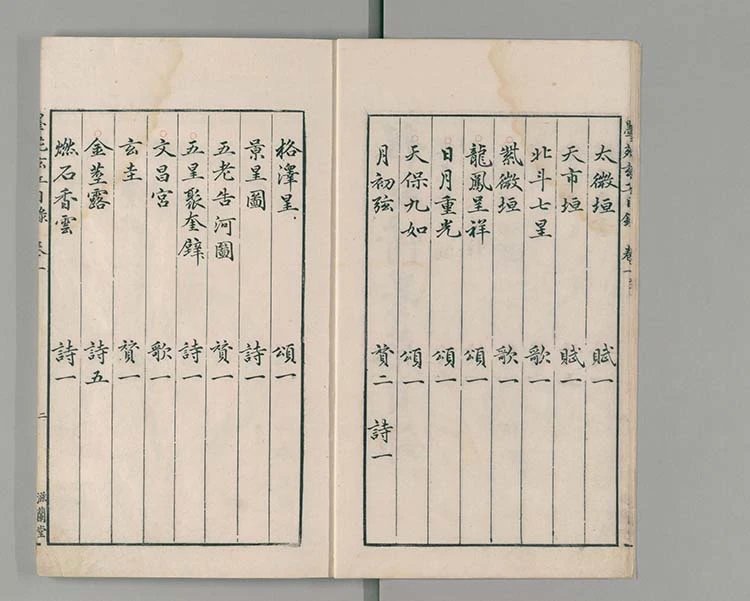 太微垣 賦一
天市垣 賦一
北斗七星 歌一
紫微垣 歌一
龍鳳呈祥 頌一
日月重光 頌一
天保九如 頌一
月初弦 賛二 詩一
格澤星 頌一
景星圖 詩一
五老告河圖 賛一
五星聚奎壁 詩一
文昌宮 歌一
玄圭 賛一
金莖露 詩五
燃石香雲 詩一
二 滋蘭堂